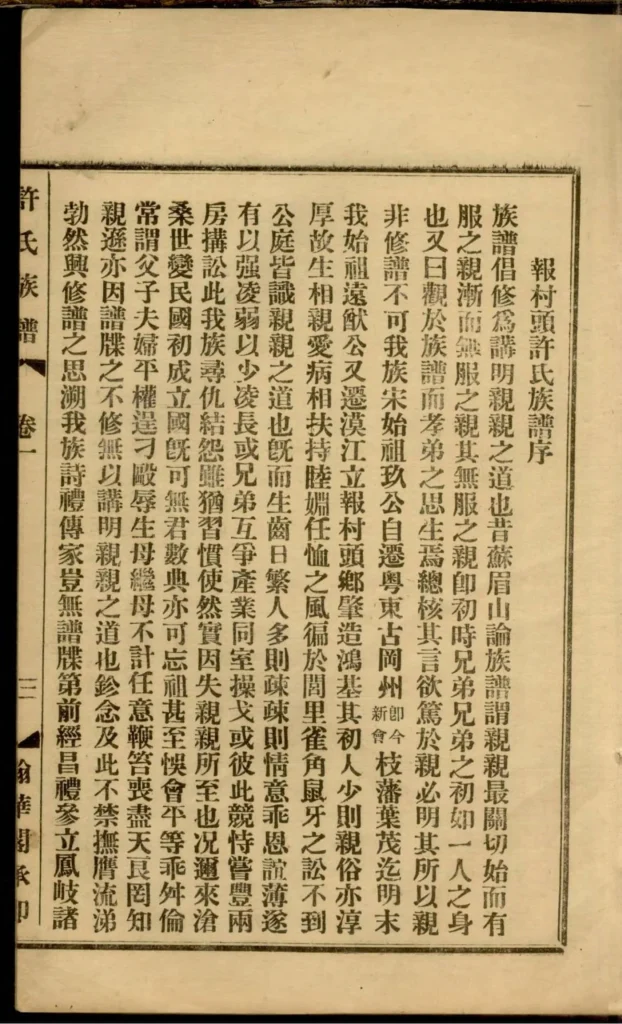 報村頭許氏族譜序
族譜倡修爲講明親親之道也昔蘇眉山論族譜謂親親最關切始而有
服之親漸而無服之親其無服之親卽初時兄弟兄弟之初如一人之身
也又曰觀於族譜而孝弟之思生焉總核其言欲篤於親必明其所以親
非修譜不可我族宋始祖玖公自遷粵東古岡州卽今新會枝藩葉茂迄明末
我始祖遠猷公又遷漠江立報村頭鄉肇造鴻基其初人少則親俗亦淳
厚故生相親愛病相扶持睦婣任恤之風徧於閭里雀角鼠牙之訟不到
公庭皆識親親之道也旣而生齒日繁人多則疎疎則情意乖恩誼薄遂
有以强凌弱以少凌長或兄弟互爭產業同室操戈或彼此競恃嘗豐兩
房搆訟此我族尋仇結怨雖猶習慣使然實因失親親所至也况邇來滄
桑世變民國初成立國旣可無君數典亦可忘祖甚至悞會平等乖舛倫
常謂父子夫婦平權逞刁毆辱生母繼母不計任意鞭笞喪盡天良罔知
親遜亦因譜牒之不修無以講明親親之道也鉁念及此不禁撫膺流涕
勃然興修譜之思溯我族詩禮傳家豈無譜牒第前經昌禮參立鳳岐諸
許氏族譜
卷一
三
翰華閣承印